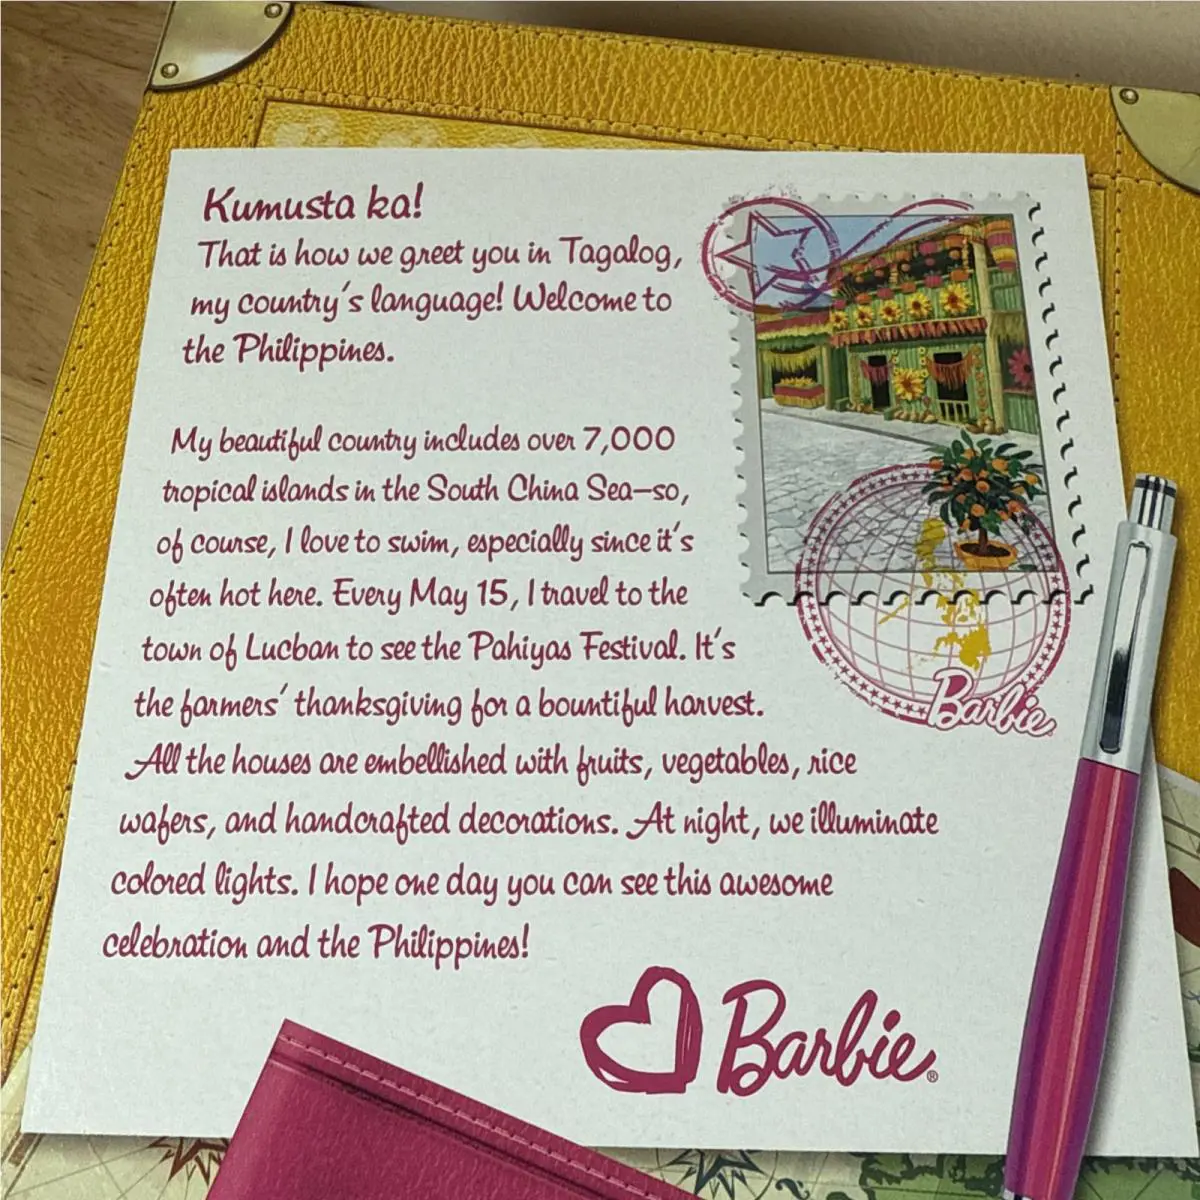 Kumusta ka!
That is how we greet you in Tagalog,
my country's language! Welcome to
the Philippines.
My beautiful country includes over 7,000
tropical islands in the South China Sea—so,
of course, I love to swim, especially since it's
often hot here. Every May 15, I travel to the
town of Lucban to see the Pahiyas Festival. It's
the farmers' thanksgiving for a bountiful harvest.
All the houses are embellished with fruits, vegetables, rice
wafers, and handcrafted decorations. At night, we illuminate
colored lights. I hope one day you can see this awesome
celebration and the Philippines!
Barbie®
Barbie